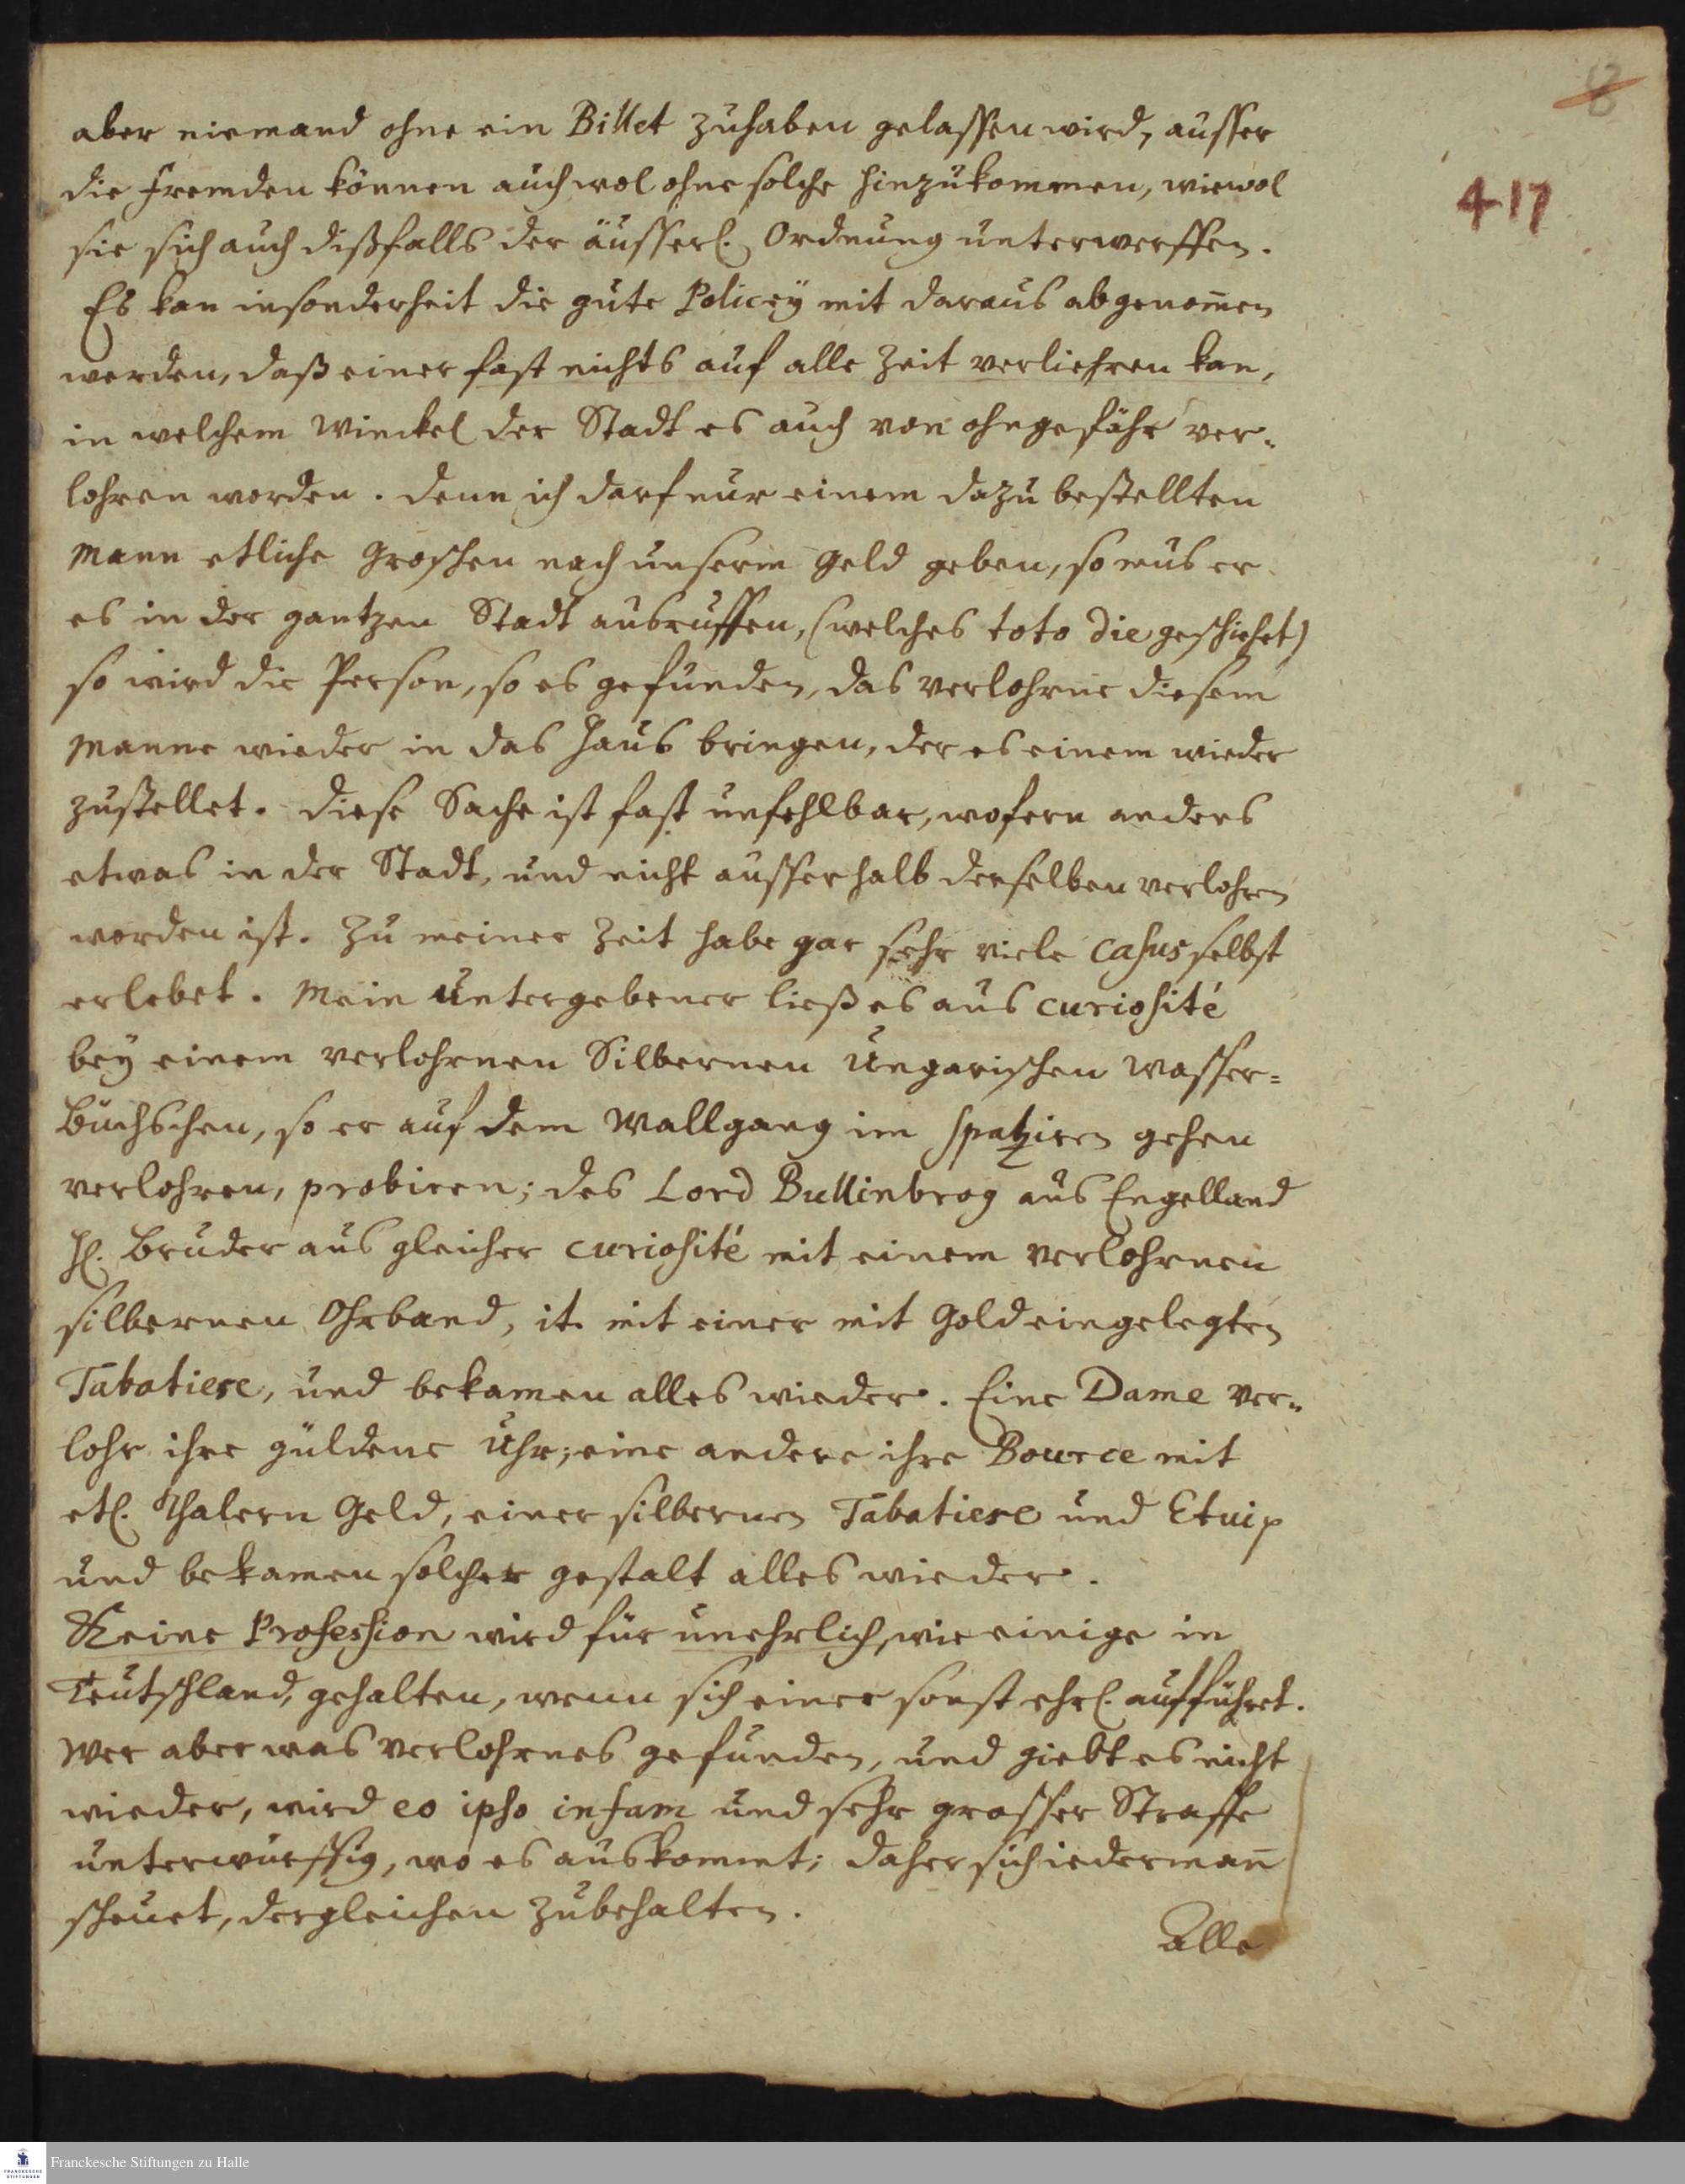 8
417
aber niemand ohne ein Billet zuhaben gelassen wird, ausser
die Fremden können auch wol ohne solche hinzukommen, wiewol
sie sich auch dißfalls der äusserl. Ordnung unterwerffen.
Es kan insonderheit die gute Policeÿ mit daraus abgenom̄en
werden, daß einer fast nichts auf alle Zeit verliehren kan,
in welchem Winckel der Stadt es auch von ohngefähr ver-
lohren worden. Denn ich darf nur einem dazu bestellten
Mann etliche Groschen nach unserm Geld geben, so mus er
es in der gantzen Stadt ausruffen, (welches toto die geschiehet)
so wird die Person, so es gefunden, das verlohrne diesem
Manne wieder in das Haus bringen, der es einem wieder
zustellet. Diese Sache ist fast unfehlbar, wofern anders
etwas in der Stadt, und nicht ausserhalb derselben verlohren
worden ist. Zu meiner Zeit habe gar sehr viele casus selbst
erlebet. Mein Untergebener ließ es aus curiosité
beÿ einem verlohrnen Silbernen Ungarischen Wasser=
Büchschen, so er auf dem Wallgang im spatziren gehen
verlohren, probiren; des Lord Bullinbrog aus Engelland
H. Bruder aus gleicher curiosité mit einem verlohrnen
silbernen Ohrband, it. mit einer mit Gold eingelegten
Tabatiere, und bekamen alles wieder. Eine Dame ver-
lohr ihre güldene Uhr; eine andere ihre Bource mit
etl. Thalern Geld, einer silbernen Tabatiere und Etuip
und bekamen solcher gestalt alles wieder.
Keine Profession wird für unehrlich, wie einige in
Teutschland, gehalten, wenn sich einer sonst ehrl. aufführet.
Wer aber was verlohrnes gefunden, und giebt es nicht
wieder, wird eo ipso infam und sehr grosser Straffe
unterwürffig, wo es auskommt; daher sich iederman̄
scheuet, dergleichen zubehalten.
Alle
Franckesche Stiftungen zu Halle